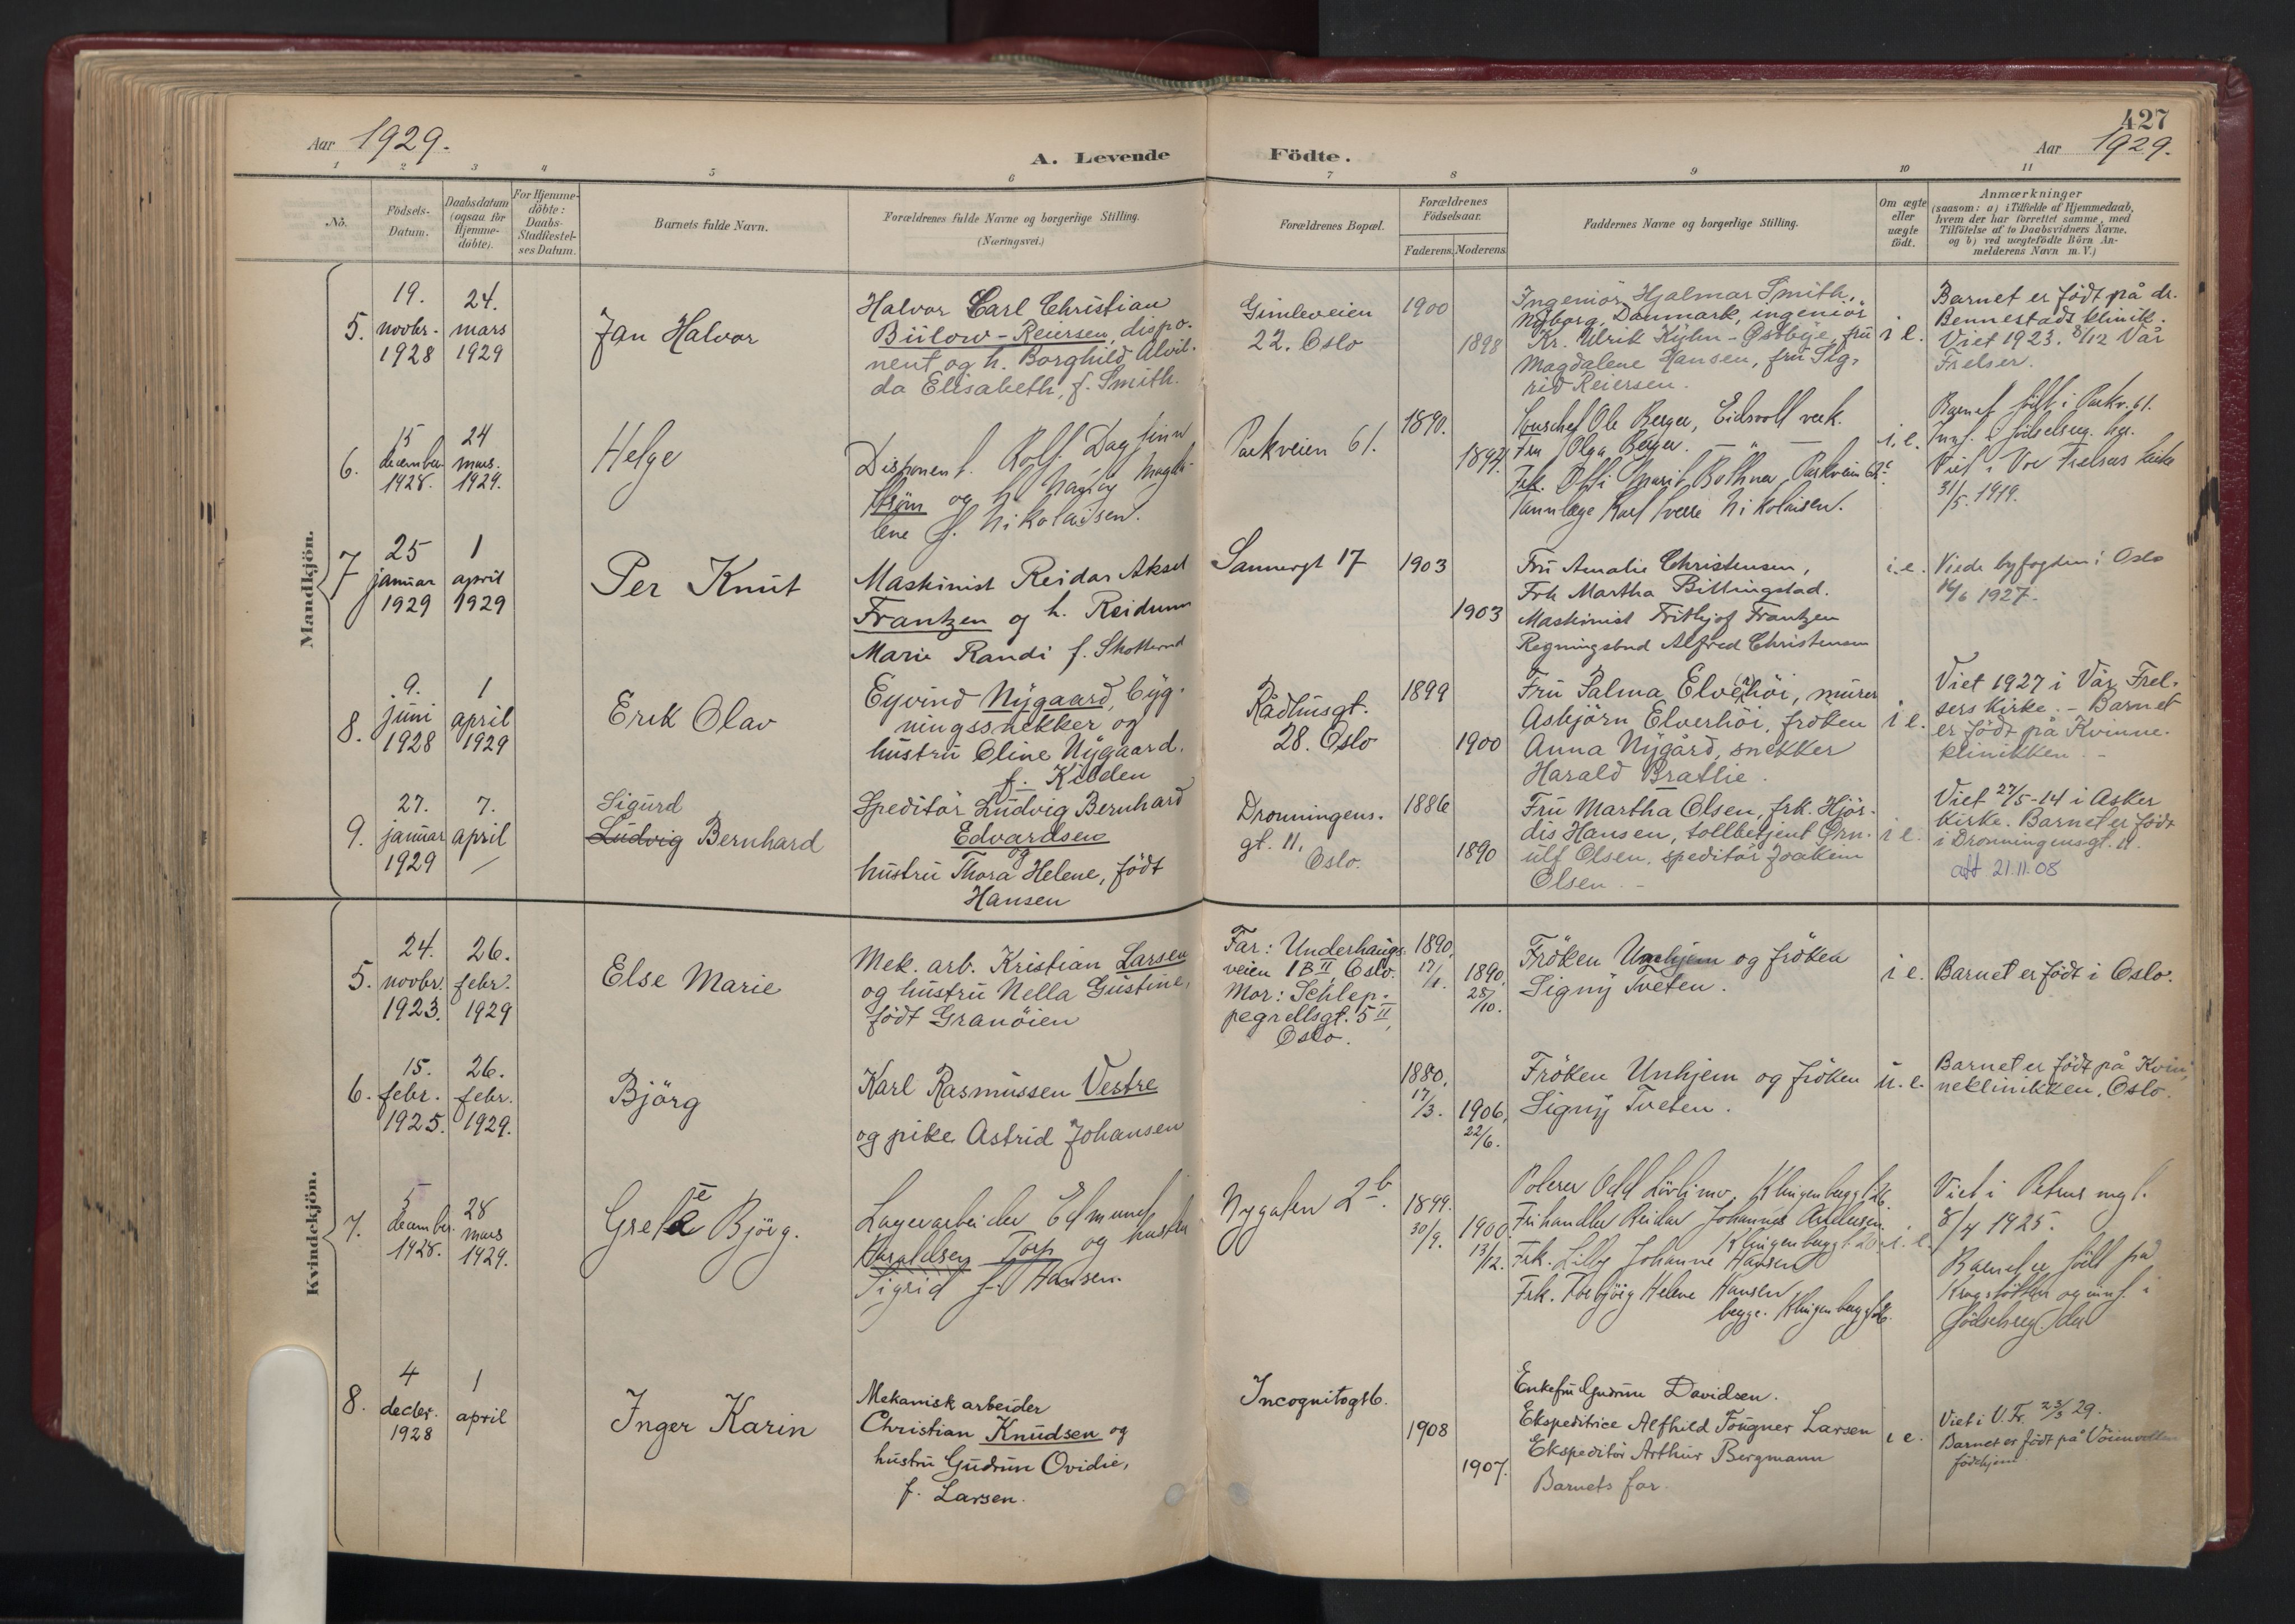 427
Aar 1929.
A. Levende Födte.
Aar 1929.
1 2 3 4 5 6 7 8 9 10 11
No.
Födsels-Datum.
Daabsdatum (ogsaa for Hjemme-döbte).
For Hjemme-döbte: Daabs-Stadfestel-ses Datum.
Barnets fulde Navn.
Forældrenes fulde Navne og borgerlige Stilling. (Næringsvei.)
Forældrenes Bopæl.
Forældrenes Födselsaar.
Faderens. Moderens.
Faddernes Navne og borgerlige Stilling.
Om ægte eller uægte födt.
Anmærkninger
(saasom: a) i Tilfælde af Hjemmedaab,
hvem der har forrettet samme, med
Tilföielse af to Daabsvidners Navne.
og b) ved uægtefödte Börn An-
melderens Navn m. V.)
Mandkjön.
5.
19. novbr. 1928
24. mars 1929
Jan Halvor
Halvor Carl Christian
Bülow-Reiersen, dispo-
nent og h. Borghild Alvil-
da Elisabeth, f. Smith.
Gimleveien
22. Oslo
1900
1898
Ingeniör Hjalmar Smith,
Nyborg, Danmark, ingeniör
Kr. Ulrik Kyhn-Østbye, fru
Magdalene Hansen, fru Sig-
rid Reiersen.
i e.
Barnet er född på dr.
Bennestads klinik.
Viet 1923. 8/12 Vår
Frelser.
6.
15 december 1928.
24 mars. 1929.
Helge
Disponent. Rolf Dagfinn
og
lene f. Nikolaisen.
Parkveien 61.
1890.
1894.
Ole Berger, Eidsvoll verk.
Fru Olga Berger.
Frk. Marit Bothner, Parkveien
Tannlæge Karl Sverre Nikolaisen.
i. e.
Barnet födt i Parkv. 61.
Viet i Vor Frelsers kirke
31/5. 1919.
7
25 januar 1929
1 april 1929
Per Knut
Maskinist Reidar Aksel
Frantzen og h. Reidunn
Marie Randi f. Skotterud
Sannergt 17
1903
1903
Fru Amalie Christensen,
Frk Martha Billingstad.
Maskinist Frithjof Frantzen
Regningsbud Alfred Christensen
i. e.
Viede byfogden i Oslo
14/6 1927.
8.
9. juni 1928
1 april 1929
Erik Olav
Eyvind Nygaard, byg-
ningssnekker og
hustru Oline Nygaard.
f. Kilden
Rådhusgt.
28. Oslo
1899
1900
Fru Palma Elverhöi, murer
Asbjörn Elverhöi, fröken
Anna Nygård, snekker
Harald Bratlie.
i e.
Viet 1927 i Vår Frel-
sers kirke. - Barnet
er födt på Kvinne-
klinikken. -
9.
27. januar 1929
7. april
Sigurd
Ludvig Bernhard
Speditör Ludvig Bernhard
Edvardsen
og
hustru Thora Helene, födt
Hansen
Dronningens.
gt. 11,
Oslo.
1886
1890
Fru Martha Olsen, frk. Hjör-
dis Hansen, tollbetjent Örn-
ulf Olsen, speditör Joakim
Olsen. -
i e.
Viet 27/5-14 i Asker
kirke. Barnet er födt
i Dronningensgt. 11.
att 21.11.08
Kvindekjön.
5.
24. novbr. 1923.
26. febr. 1929
Else Marie
Mek. arb. Kristian Larsen
og hustru Nella Gustine,
födt Granöien
Far: Underhaugs-
veien 1B II, Oslo.
Mor: Schlep-
pegrellsgt. 5 II,
Oslo.
1890, 17/1.
1890, 28/10.
Fröken Unhjem og fröken
Signy Tveten.
i e.
Barnet er födt i Oslo.
6.
15. febr. 1925.
26. febr. 1929.
Björg
Karl Rasmussen Vestre
og pike Astrid Johansen
1880, 17/3.
1906, 22/6.
Fröken Unhjem og fröken
Signy Tveten.
u. e.
Barnet er födt på Kvin-
neklinikken, Oslo.
7.
5 december. 1928.
28 mars 1929.
Grete Björg.
Lagerarbeider Edmund
Haraldsen Torp og hustru
Sigrid f. Hansen.
Nygaten 2b.
1899. 30/9.
1900 13/12.
Polerer Odd Klingenberggt 26.
Frihandler Reidar Johannes Andersen
Klingenberggt 26.
Frk. Lilly Johanne Hansen
Frk. Torbjörg Helene Hansen
begge. Klingenberggt 26.
i. e.
Viet i Petrus mgt.
8/4 1925.
Barnet er födt på
Krogstötten og innf. i
födselsreg. der
8.
4 decbr. 1928
1 april
Inger Karin
Mekanisk arbeider
Christian Knudsen og
hustru Gudrun Ovidie,
f. Larsen.
Incognitogt 6.
1908
1907.
Enkefru Gudrun Davidsen.
Ekspeditrice Alfhild Fougner Larsen
Ekspeditör Arthur Bergmann
Barnets far.
i e.
Viet i V. Fr. 23/3 29.
Barnet er födt på Vöienvolden
födehjem